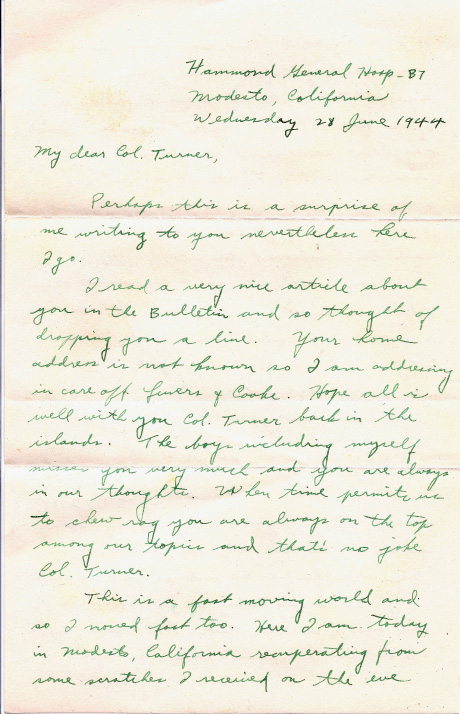 Hammond General Hosp-B7
Modesto, California
Wednesday 28 June 1944
My dear Col. Turner,
Perhaps this is a surprise of
me writing to you nevertheless here
I go.
I read a very nice article about
you in the Bulletin and so thought of
dropping you a line. Your home
address is not known so I am addressing
in care off & Cooke. Hope all is
well with you Col. Turner back in the
islands. The boys including myself
misses you very much and you are always
in our thoughts. When time permits us
to chew rag you are always on the top
among our topics and that's no joke
Col. Turner.
This is a fast moving world and
so I moved fast too. Here I am today
in Modesto, California recuperating from
some scratches I received on the eve